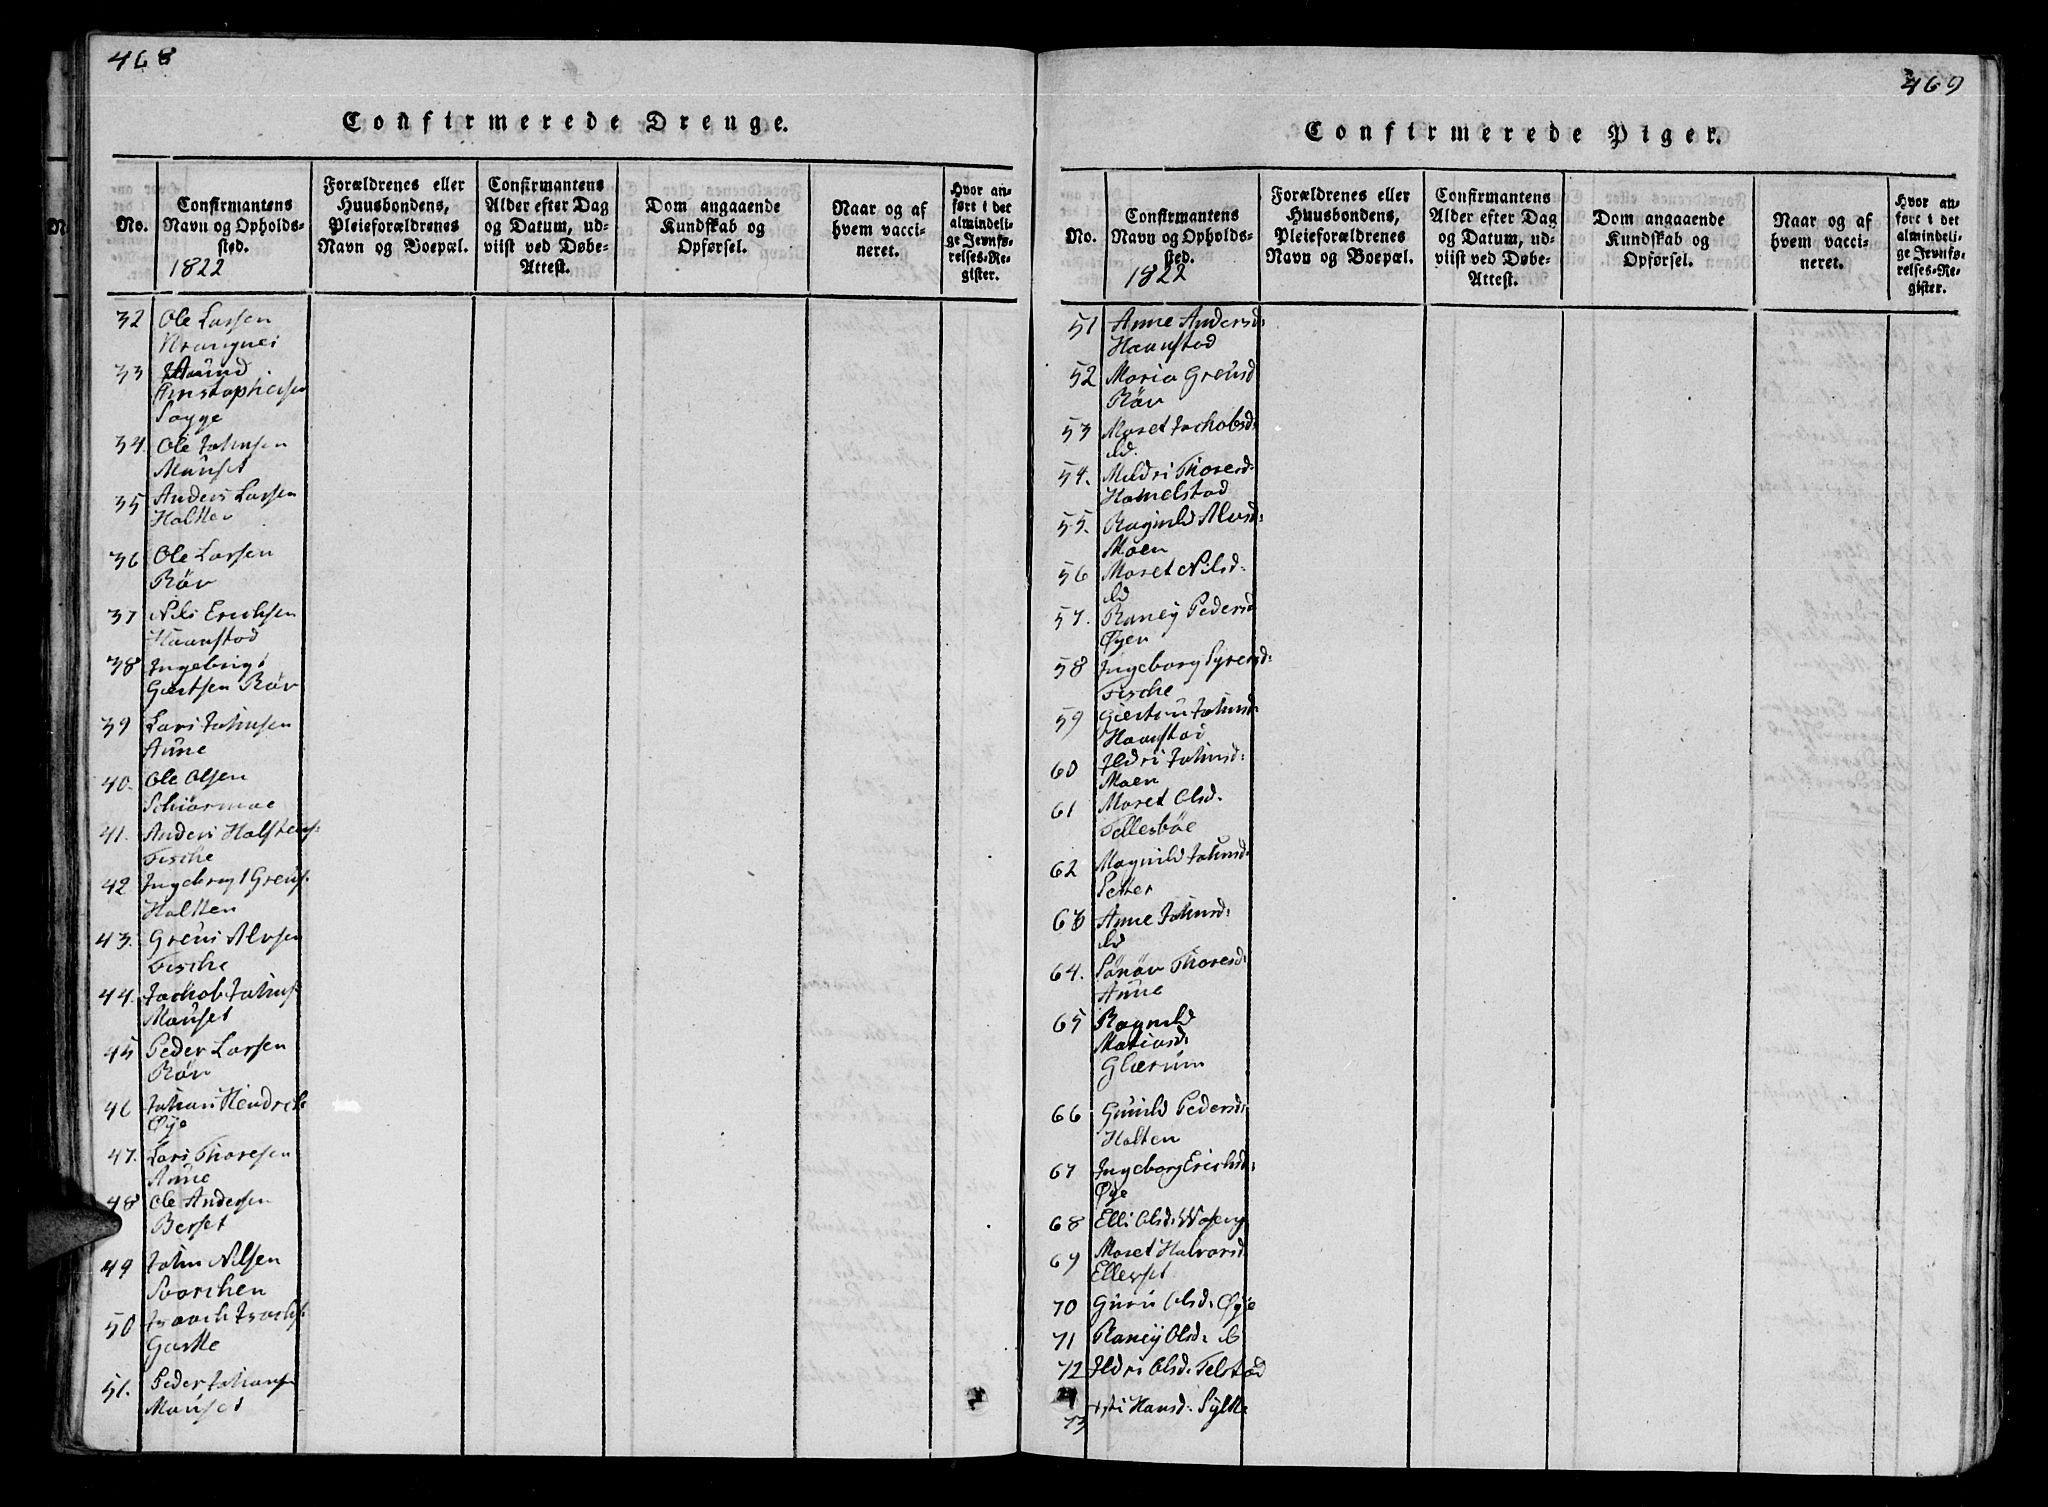 468
Confirmerede Drenge.
No.
Confirmantens Navn og Opholds-sted.
1822
Forældrenes eller Huusbondens, Pleieforældrenes Navn og Boepæl.
Confirmantens Alder efter Dag og Datum, ud-viist ved Døbe-Attest.
Dom angaaende Kundskab og Opførsel.
Naar og af hvem vacci-neret.
Hvor an-ført i det almindeli-ge Jevnfø-relses-Re-gister.
32 Ole Larsen
33
Sogge
34. Ole Johnsen
Mauset
35 Anders Larsen
Halten
36 Ole Larsen
Röv
37 Nils Erichsen
Haanstad
38 Ingebrigt
Giertsen Röv
39 Lars Johnsen
Aune
40. Ole Olsen
Schiörmoe
41. Anders Halstens:
Fiske
42 Ingebrigt Greus:
Halten
43. Greus Alvsen
Fische
44. Jachob Johns:
Mauset
45 Peder Larsen
Röv
46 Johan Hendrik:
Øye
47. Lars Thoresen
Aune
48 Ole Andersen
Berset
49 John Nilsen
Svorchen
50
51. Peder Johans:
Mauset
469
Confirmerede Piger.
No.
Confirmantens Navn og Opholds-sted.
1822
Forældrenes eller Huusbondens, Pleieforældrenes Navn og Boepæl.
Confirmantens Alder efter Dag og Datum, ud-viist ved Døbe-Attest.
Dom angaaende Kundskab og Opførsel.
Naar og af hvem vacci-neret.
Hvor an-ført i det almindeli-ge Jevnfø-relses-Re-gister.
51 Anne Andersd:
Haanstad
52 Maria Greusd
Röv
53 Maret Jachobsd:
ld.
54. Mildri Thoresd:
Hamelstad
55. Ragnild Alvsd:
Moen
56 Maret Nilsd:
ld
57. Raney Pedersd
Øyen
58 Ingeborg Syversd:
Fische
59 Johnsd:
Haanstad
60 Ildri Johnsd:
Moen
61 Maret Olsd:
Tellesböe
62 Magnild Johnsd:
Setter
63 Anne Johnsd:
ld
64. Sönöv Thoresd:
Aune
65 Ragnild
Matiasd:
Glærum
66 Gunild Pedersd:
Halten
67 Ingeborg Erichsd:
Øye
68 Elli Olsd:
69 Maret Halvorsd:
Ellevset
70 Guru Olsd: Øye
71 Raney Olsd: ld
72 Ildri Olsd: Telstad
73 Hansd: Sylte